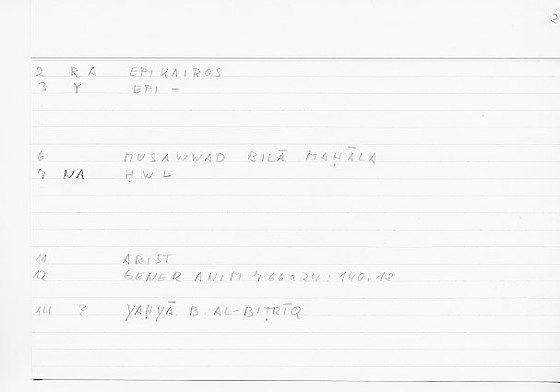 2
2 R A EPIKAIROS
3 Y EPI -
6 MUSAWWAD BILĀ MAḤĀLA
7 NA ḤWL
11 ARIST
12 GENER ANIM 766a24 : 140.18
14 ? YAḤYĀ B. AL-BIṬRĪQ